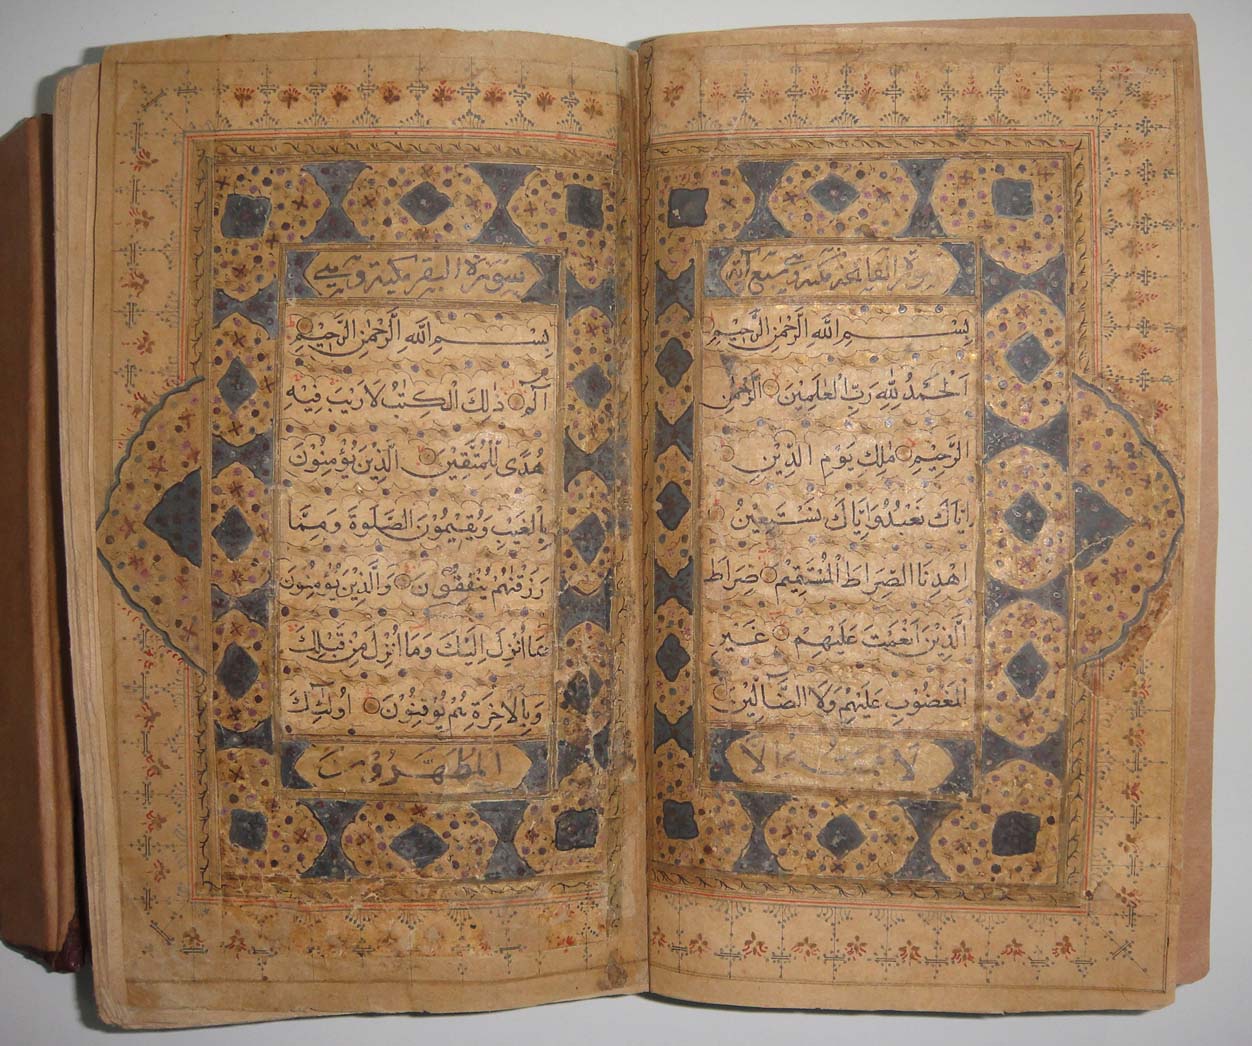 سورة الفاتحه مكية وهي سبع آية
بِسْمِ اللّٰهِ الرَّحْمٰنِ الرَّحِيْمِ
اَلْحَمْدُ لِلّٰهِ رَبِّ الْعٰلَمِيْنَ الرَّحْمٰنِ
الرَّحِيْمِ مٰلِكِ يَوْمِ الدِّيْنِ
اِيَّاكَ نَعْبُدُ وَاِيَّاكَ نَسْتَعِيْنُ
اِهْدِنَا الصِّرَاطَ الْمُسْتَقِيْمَ صِرَاطَ
الَّذِيْنَ اَنْعَمْتَ عَلَيْهِمْ غَيْرِ
الْمَغْضُوْبِ عَلَيْهِمْ وَلَا الضَّالِّيْنَ
لا يمسه الا
سورة البقر مكية وهي
بِسْمِ اللّٰهِ الرَّحْمٰنِ الرَّحِيْمِ
الٓمٓ ذٰلِكَ الْكِتٰبُ لَا رَيْبَ فِيْهِ
هُدًى لِلْمُتَّقِيْنَ الَّذِيْنَ يُؤْمِنُوْنَ
بِالْغَيْبِ وَيُقِيْمُوْنَ الصَّلٰوةَ وَمِمَّا
رَزَقْنٰهُمْ يُنْفِقُوْنَ وَالَّذِيْنَ يُؤْمِنُوْنَ
بِمَا اُنْزِلَ اِلَيْكَ وَمَا اُنْزِلَ مِنْ قَبْلِكَ
وَبِالْاٰخِرَةِ هُمْ يُوْقِنُوْنَ اُولٰٓئِكَ
المطهرون